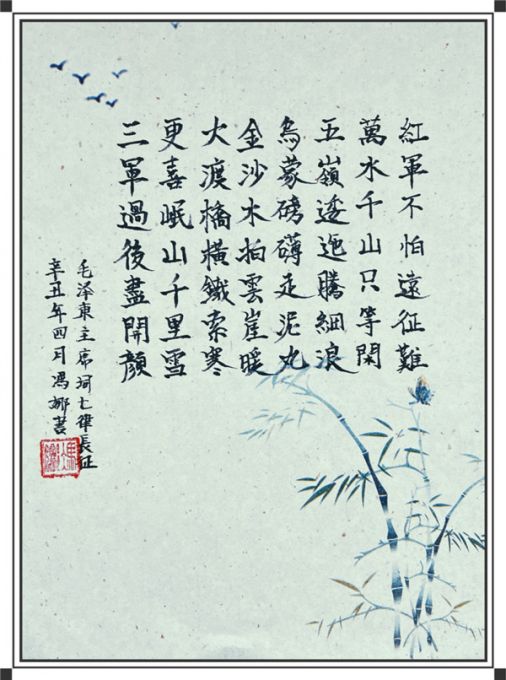 紅軍不怕遠征難
萬水千山只等閑
五嶺逶迤騰細浪
烏蒙磅礴走泥丸
金沙水拍雲崖暖
大渡橋橫鐵索寒
更喜岷山千里雪
三軍過後盡開顏
毛泽東主席词七律長征
辛丑年四月馮娜書